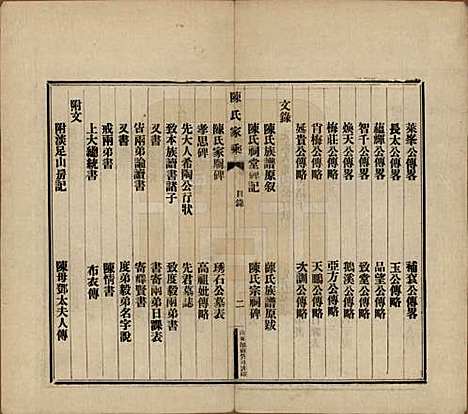 萊峯公傳畧
補袞公傳畧
長太公傳畧
玉公傳略
蘊輝公傳畧
品望公傳略
智千公傳略
致堂公傳略
煥天公傳略
鵝溪公傳略
梅莊公傳略
亞方公傳略
宵梅公傳略
天鵬公傳略
延貴公傳略
次訓公傳略
文錄
陳氏族譜原叙
陳氏族譜原跋
陳氏祠堂碑記
陳氏宗祠碑
陳氏家乘
目錄
二
陳氏家廟碑
琇石公墓表
孝思碑
高祖妣傳略
先大人希陶公行狀
先君墓誌
致本族讀書諸子
致度毅兩弟書
又書
書寄兩弟日課表
寄兩弟論讀書
寄釋賢書
又書
度弟毅弟名字說
戒兩弟書
陳情書
上大總統書
布衣傳
附文
附漢足山房記
陳母鄧太夫人傳